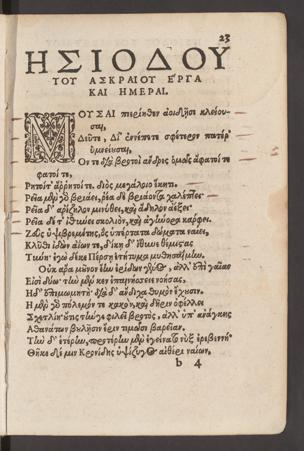 23
ΗΣΙΟΔΟΥ
ΤΟΥ ΑΣΚΡΑΙΟΥ ΕΡΓΑ
ΚΑΙ ΗΜΕΡΑΙ.
ΜΟΥΣΑΙ πιερίηθεν ἀοιδῇσι κλείου-
σαι,
Δεῦτε, Δί' ἐννέπετε σφέτερον πατέρ'
ὑμνείουσαι,
Ὅν τε διὰ βροτοὶ ἄνδρες ὁμῶς ἄφατοί τε
φατοί τε,
Ῥητοί τ' ἄρρητοί τε. διὸς μεγάλοιο ἕκητι.
Ῥεῖα μὲν γὸ βριάει, ῥέα δὲ βριάοντα χαλέπτει
Ῥεῖα δ' ἀρίζηλον μινύθει, καὶ ἄδηλον ἀέξει
Ῥεῖα δέ τ' ἰθύνει σκολιὸν, καὶ ἀγήνορα κάρφει.
Ζεὺς ὑψιβρεμέτης, ὃς ὑπέρτατα δώματα ναίει,
Κλῦθι ἰδὼν ἀΐων τε, δίκῃ δ' ἴθυνε θέμιστας
Τύνη· ἐγὼ δέ κε Πέρσῃ ἐτήτυμα μυθησαίμην.
Οὐκ ἄρα μοῦνον ἔην ἐρίδων γένος, ἀλλ' ἐπὶ γαῖαν
Εἰσὶ δύω· τὴν μέν κεν ἐπαινήσειε νοήσας,
Ἡ δ' ἐπιμωμητή· διὰ δ' ἄνδιχα θυμὸν ἔχουσιν.
Ἡ μὲν γὸ πόλεμόν τε κακὸν, καὶ δῆριν ὀφέλλει
Σχετλίη· οὔτις τήν γε φιλεῖ βροτὸς, ἀλλ' ὑπ' ἀνάγκης
Ἀθανάτων βουλῇσιν ἔριν τιμῶσι βαρεῖαν.
Τὴν δ' ἑτέρην, προτέρην μὲν ἐγείνατο νὺξ ἐρεβεννή
Θῆκε δέ μιν Κρονίδης ὑψίζυγος αἰθέρι ναίων,
b 4